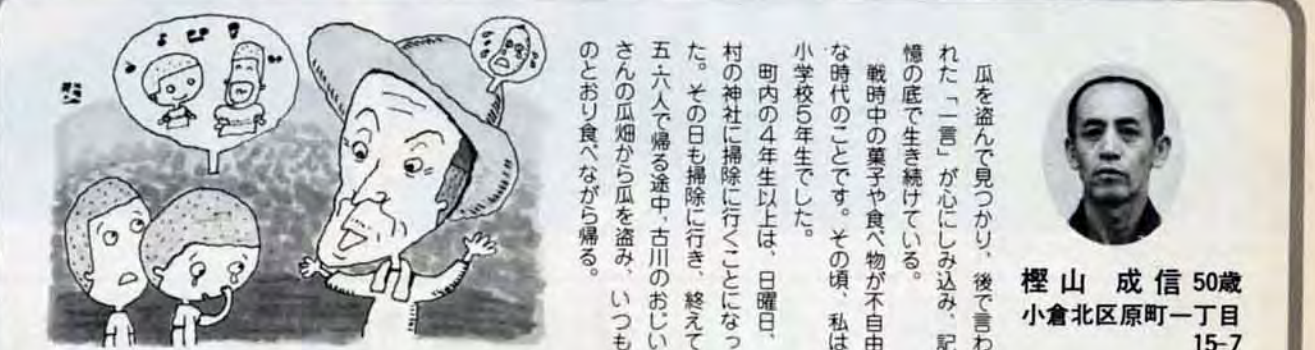 樫山 成信 50歳
小倉北区原町一丁目
15-7
瓜を盗んで見つかり、後で言わ
れた「一言」が心にしみ込み、記
憶の底で生き続けている。
戦時中の菓子や食べ物が不自由
な時代のことです。その頃、私は
小学校5年生でした。
町内の4年生以上は、日曜日、
村の神社に掃除に行くことになっ
た。その日も掃除に行き、終えて
五・六人で帰る途中、古川のおじい
さんの瓜畑から瓜を盗み、いつも
のとおり食べながら帰る。